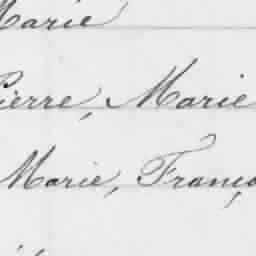 Marie
Pierre, Marie
Marie, Franço